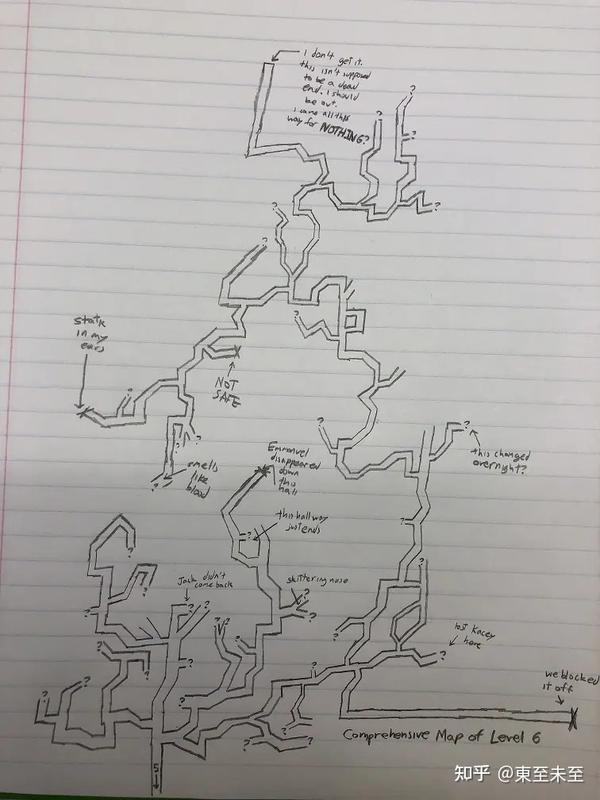 I don't get it.
this isn't supposed
to be a dead
end. I should
be out.
I came all this
way for NOTHING?
?
?
?
?
?
?
?
static
in my
ears
NOT
SAFE
?
?
?
smells
like
blood
?
?
this changed
overnight?
Emmanuel
disappeared
down
this
hall
?
this hallway
just ends
?
?
?
?
?
Jack didn't
come back
?
skittering noise
?
?
?
?
lost Kacey
here
?
?
?
?
?
?
?
?
?
?
we blocked
it off
Comprehensive Map of Level 6
?
?
?
5
知乎 @東至未至